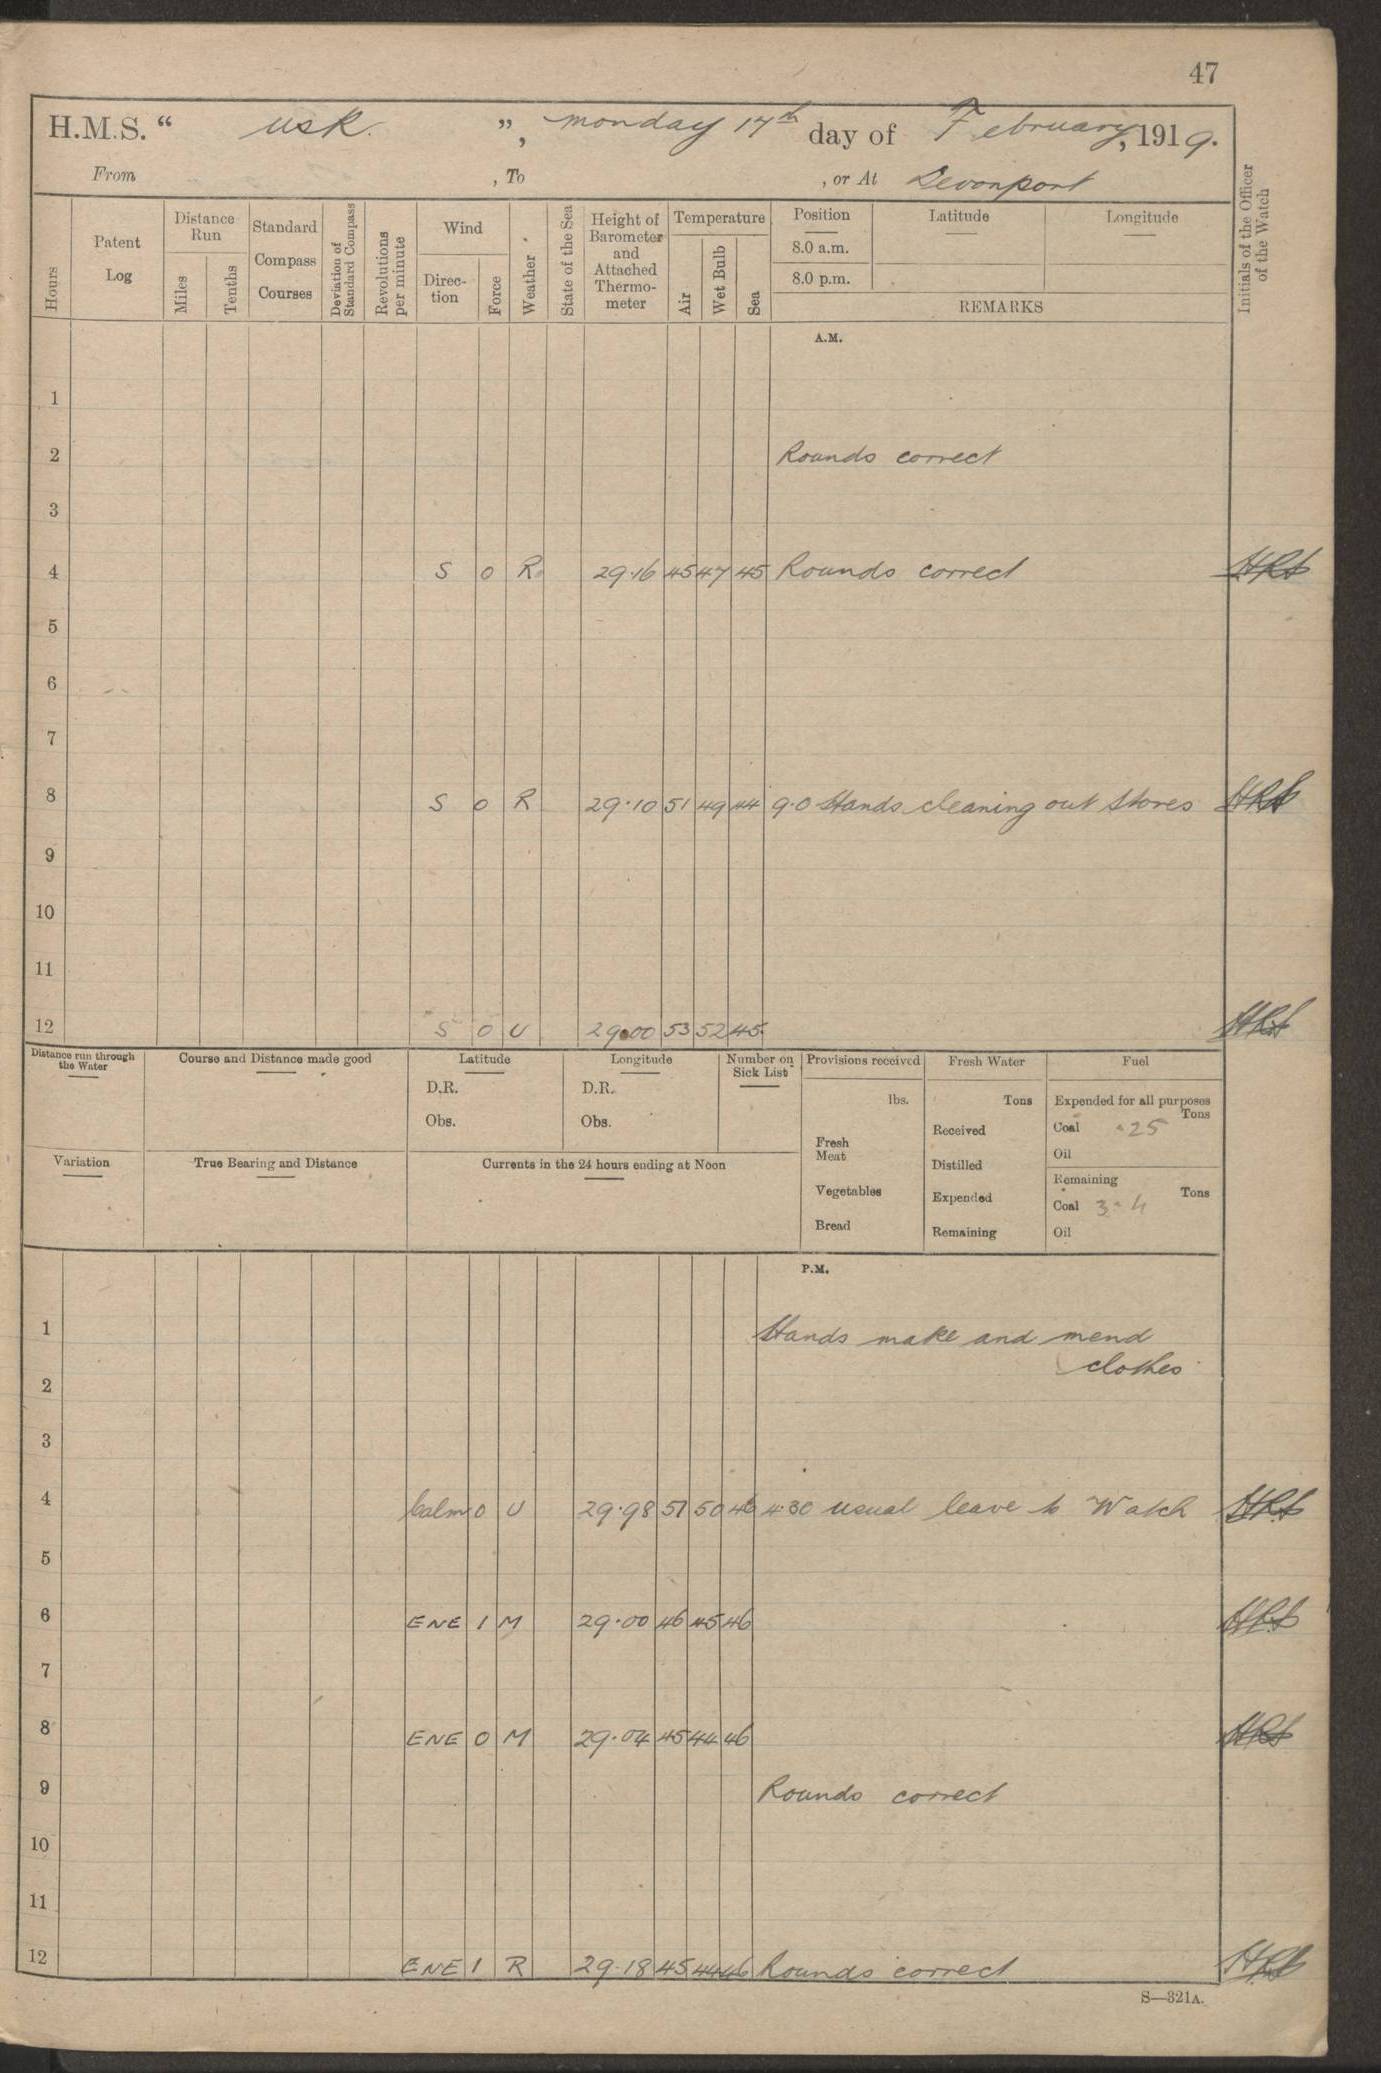 47
H.M.S. “ Usk. ”, Monday 17th day of February, 1919.
From , To , or At Devonport
Hours
Patent Log
Distance Run
Miles
Tenths
Standard Compass Courses
Deviation of Standard Compass
Revolutions per minute
Wind
Direc-tion
Force
Weather
State of the Sea
Height of Barometer and Attached Thermo-meter
Temperature
Air
Wet Bulb
Sea
Position
8.0 a.m.
8.0 p.m.
Latitude
Longitude
REMARKS
Initials of the Officer of the Watch
A.M.
1
2 Rounds correct
3
4 S 0 R 29.16 45 47 45 Rounds correct
5
6
7
8 S 0 R 29.10 51 49 44 9.0 Hands cleaning out Stores
9
10
11
12 S 0 U 29.00 53 52 45
Distance run through the Water
Course and Distance made good
Latitude
D.R.
Obs.
Longitude
D.R.
Obs.
Number on Sick List
Provisions received
lbs.
Fresh Meat
Vegetables
Bread
Fresh Water
Tons
Received
Distilled
Expended
Remaining
Fuel
Expended for all purposes
Tons
Coal .25
Oil
Remaining
Tons
Coal 3.4
Oil
Variation
True Bearing and Distance
Currents in the 24 hours ending at Noon
P.M.
1 Hands make and mend
clothes
2
3
4 Calm 0 U 29.98 51 50 46 4.30 usual leave to Watch
5
6 ENE 1 M 29.00 46 45 46
7
8 ENE 0 M 29.04 45 44 46
9 Rounds correct
10
11
12 ENE 1 R 29.18 45 44 46 Rounds correct
S—321A.